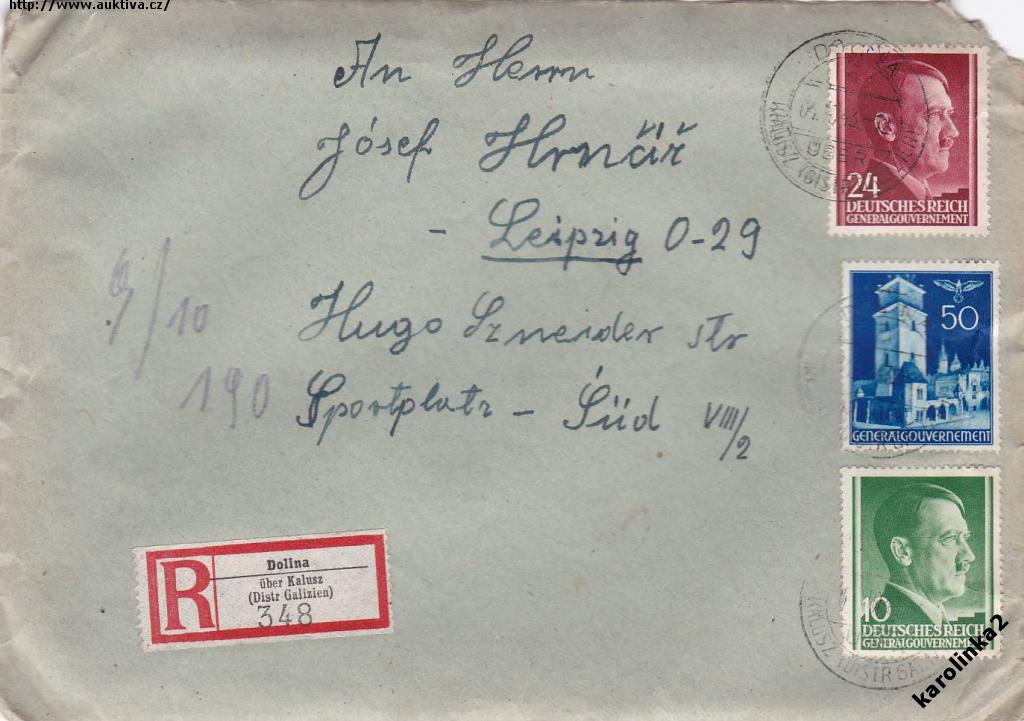 http://www.auktiva.cz/
An Herrn
Jósef Hrnčář
- Leipzig O-29
Hugo Szneider str
Sportplatz - Süd VIII/2
9/10
190
R
Dolina
über Kalusz
(Distr Galizien)
348
24
DEUTSCHES REICH
GENERALGOUVERNEMENT
50
GENERALGOUVERNEMENT
10
DEUTSCHES REICH
GENERALGOUVERNEMENT
DOLINA
KALUSZ (DISTR
KALUSZ (DISTR GA
karolinka2